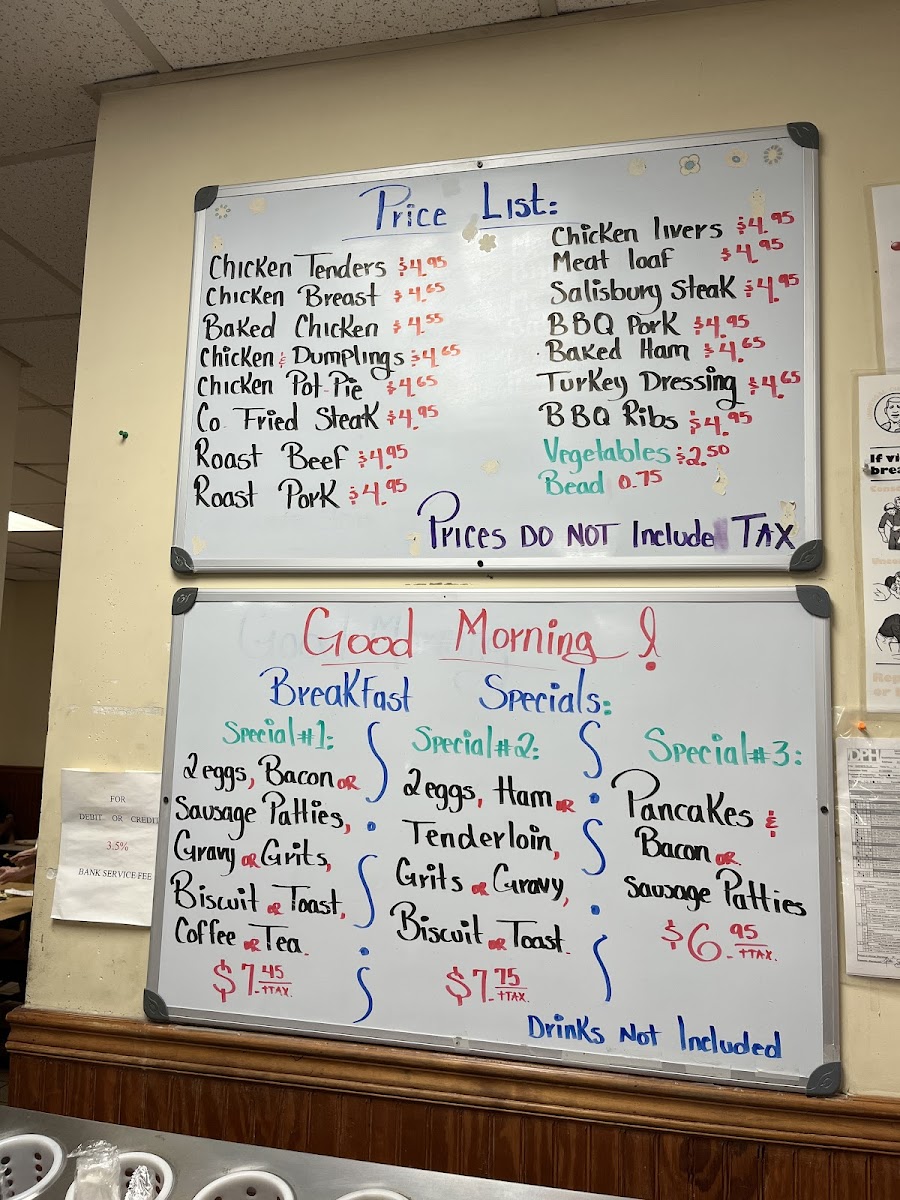 Price List:
Chicken Tenders $4.95
Chicken Breast $4.65
Baked Chicken $4.55
Chicken & Dumplings $4.65
Chicken Pot-Pie $4.65
Co. Fried Steak $4.95
Roast Beef $4.95
Roast Pork $4.95
Chicken livers $4.95
Meat loaf $4.95
Salisbury Steak $4.95
BBQ Pork $4.95
Baked Ham $4.65
Turkey Dressing $4.65
BBQ Ribs $4.95
Vegetables $2.50
Bead 0.75
Prices DO NOT Include TAX
Good Morning!
Breakfast Specials:
Special#1:
2eggs, Bacon OR
Sausage Patties,
Gravy OR Grits,
Biscuit OR Toast,
Coffee OR Tea.
$7.45 +TAX.
Special#2:
2eggs, Ham OR
Tenderloin,
Grits OR Gravy,
Biscuit OR Toast.
$7.75 +TAX.
Special#3:
Pancakes &
Bacon OR
Sausage Patties
$6.95 +TAX.
Drinks Not Included
FOR
DEBIT OR CREDIT
3.5%
BANK SERVICE FEE
If vi
brea
DPH